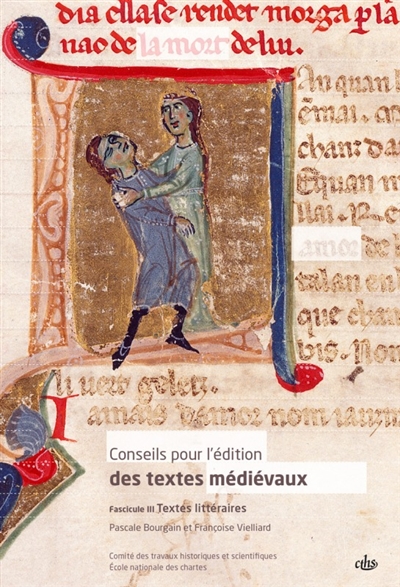 dia ellase rendet morga p la
nao de la mort de lui.
An quan
chant
Equan
amor de
talan en
que chan
vis. Non
li uert geletz.
Iamais damor nom
Conseils pour l'édition
des textes médiévaux
Fascicule III Textes littéraires
Pascale Bourgain et Françoise Vielliard
Comité des travaux historiques et scientifiques
École nationale des chartes
cths